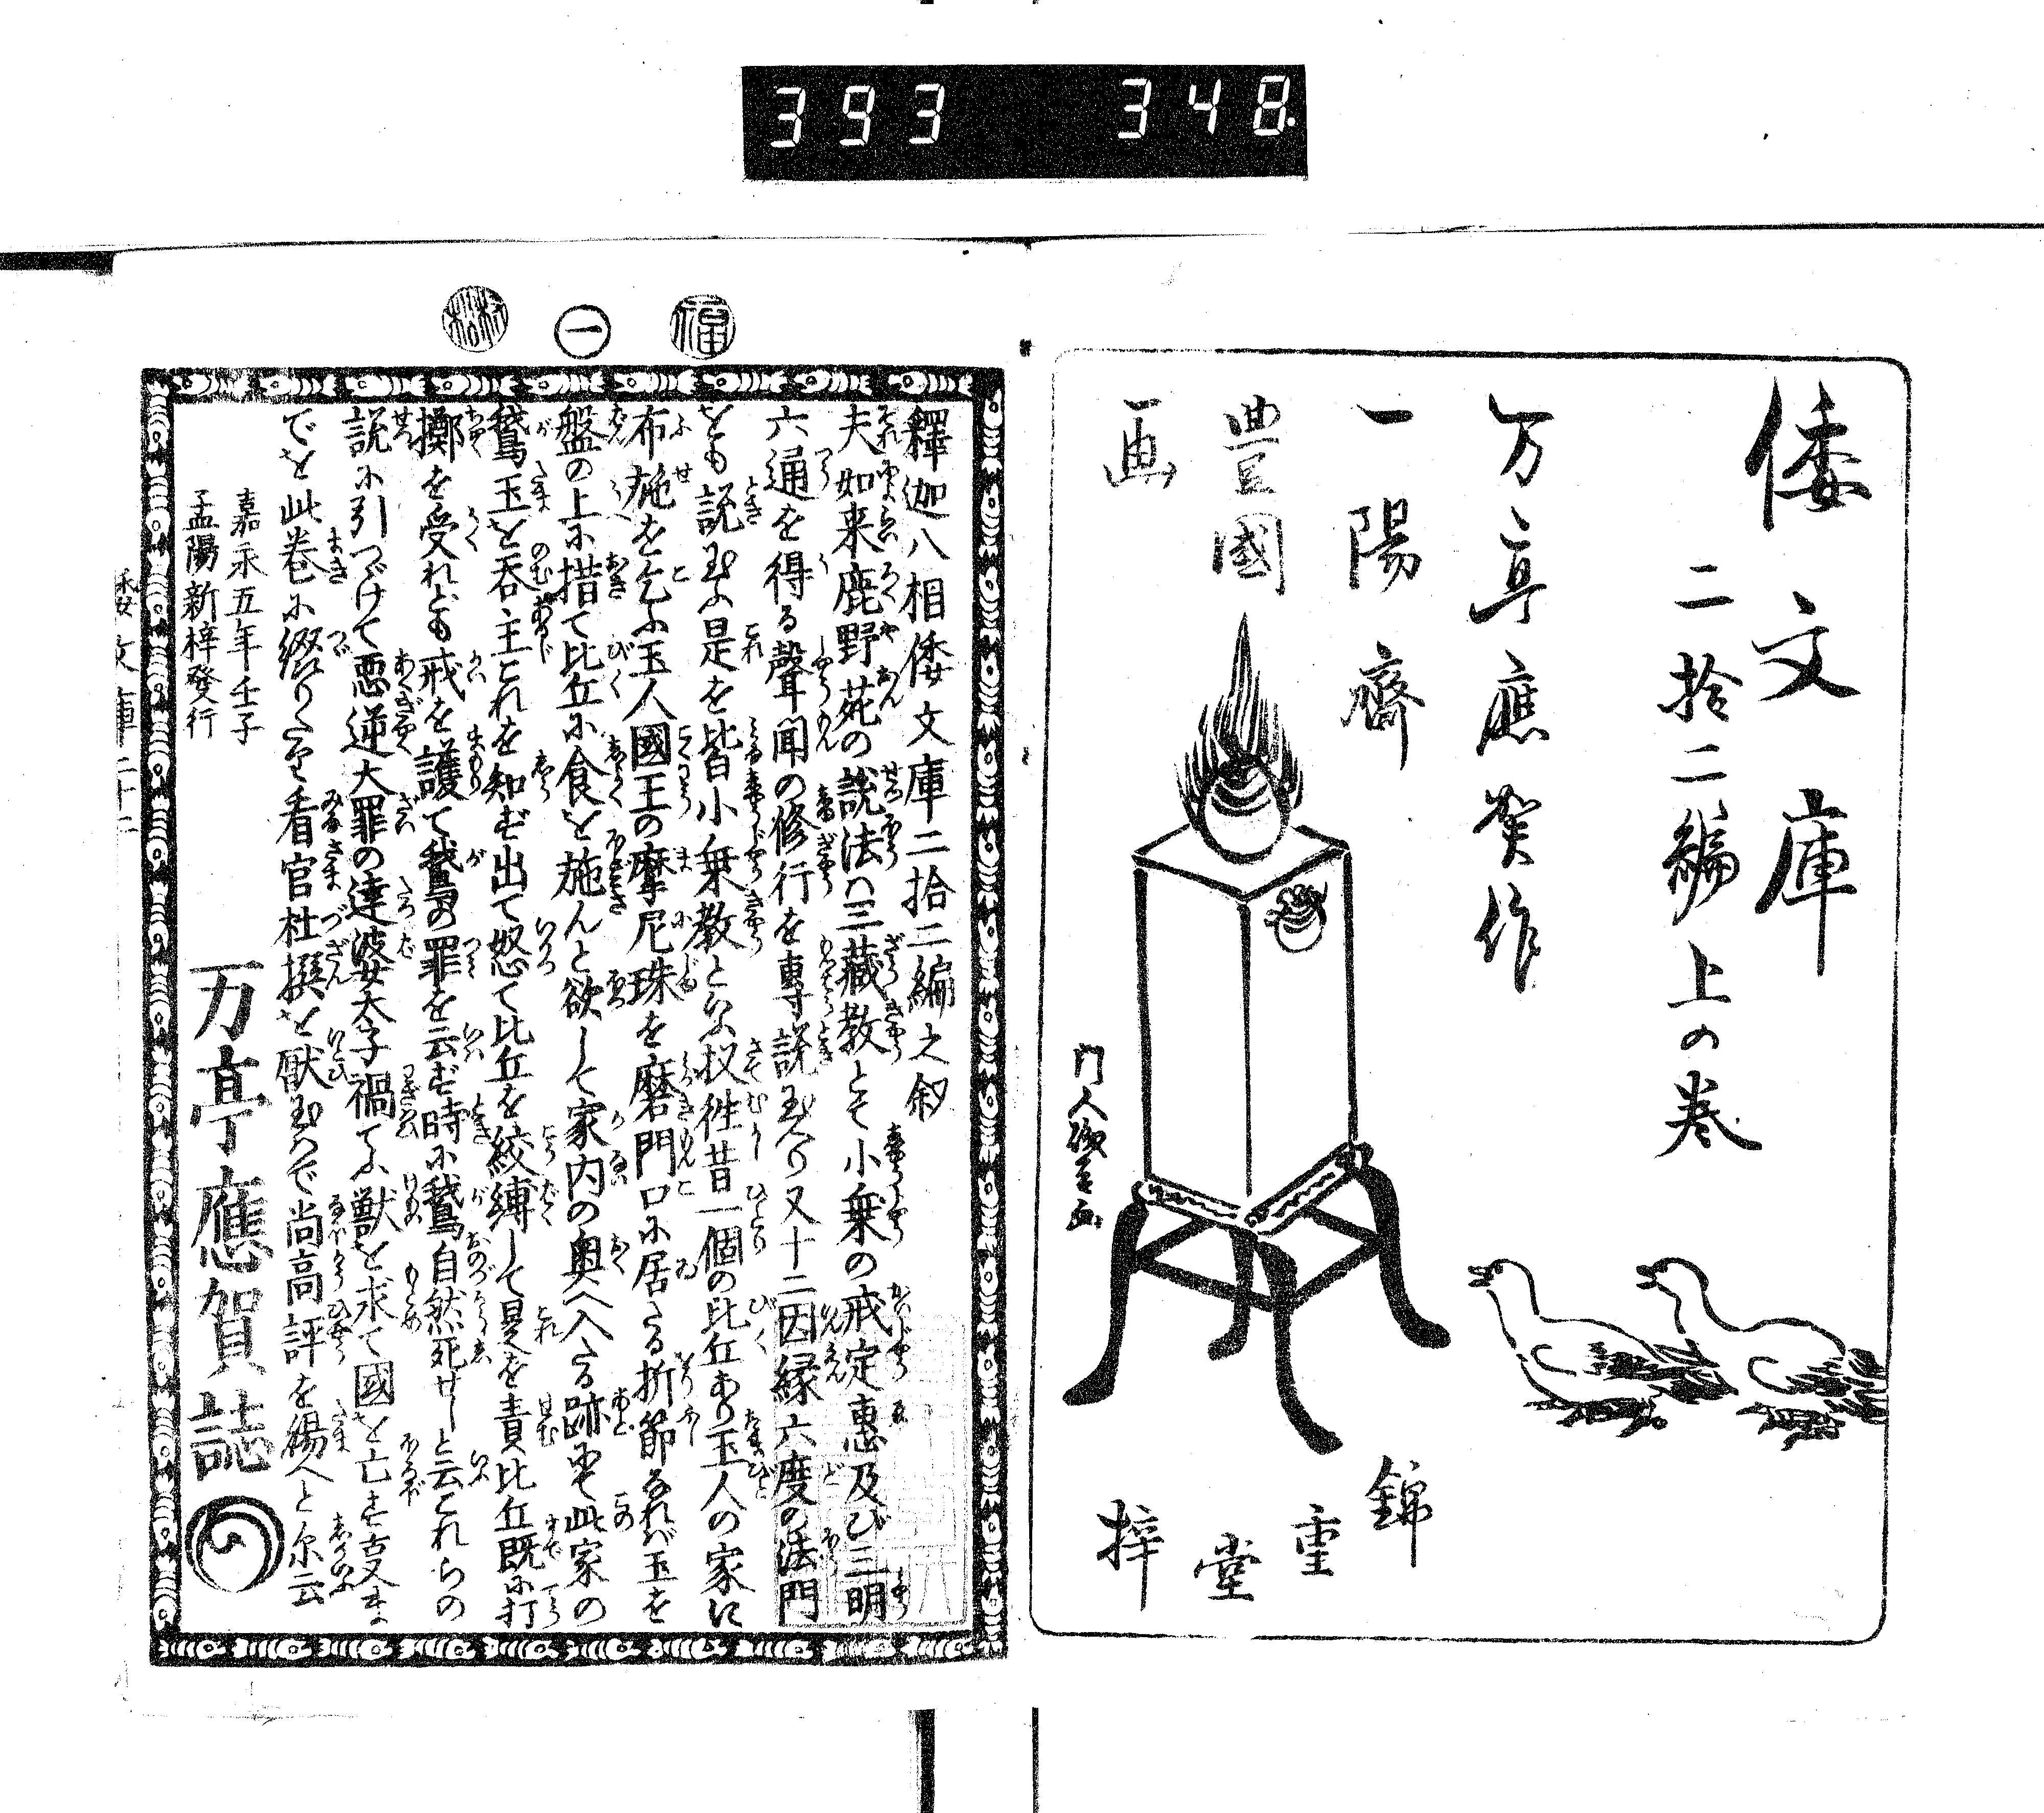 393 348
倭文庫
二拾二編上の巻
万亭應賀作
一陽齋
豊國
画
門人
錦重堂
梓
福
一
釋迦八相倭文庫二拾二編之敘
夫如来鹿野苑の說法ハ三藏教とて小乗の戒定惠及び三明
六通を得る聲聞の修行を專說玉へり又十二因縁六度の法門
をも說玉ふ是を皆小乗教といふ扠徃昔一個の比丘あり玉人の家に
布施を乞ふ玉人國王の摩尼珠を磨門口に居たる折節なれバ玉を
盤の上に措て比丘に食を施んと欲して家内の奥へ入たる跡にて此家の
鵞玉を呑主これを知ず出て怒て比丘を絞縛して是を責比丘既に打
擲を受れども戒を護て鵞の罪を云ず時に鵞自然死せしと云これらの
說に引つゞけて惡逆大罪の達婆太子禍てふ獣を求て國を亡す叓ま
でを此巻に綴りたり看官杜撰を厭玉はで尚高評を賜へと尓云
嘉永五年壬子
孟陽新梓發行
万亭應賀誌
倭文庫二十二